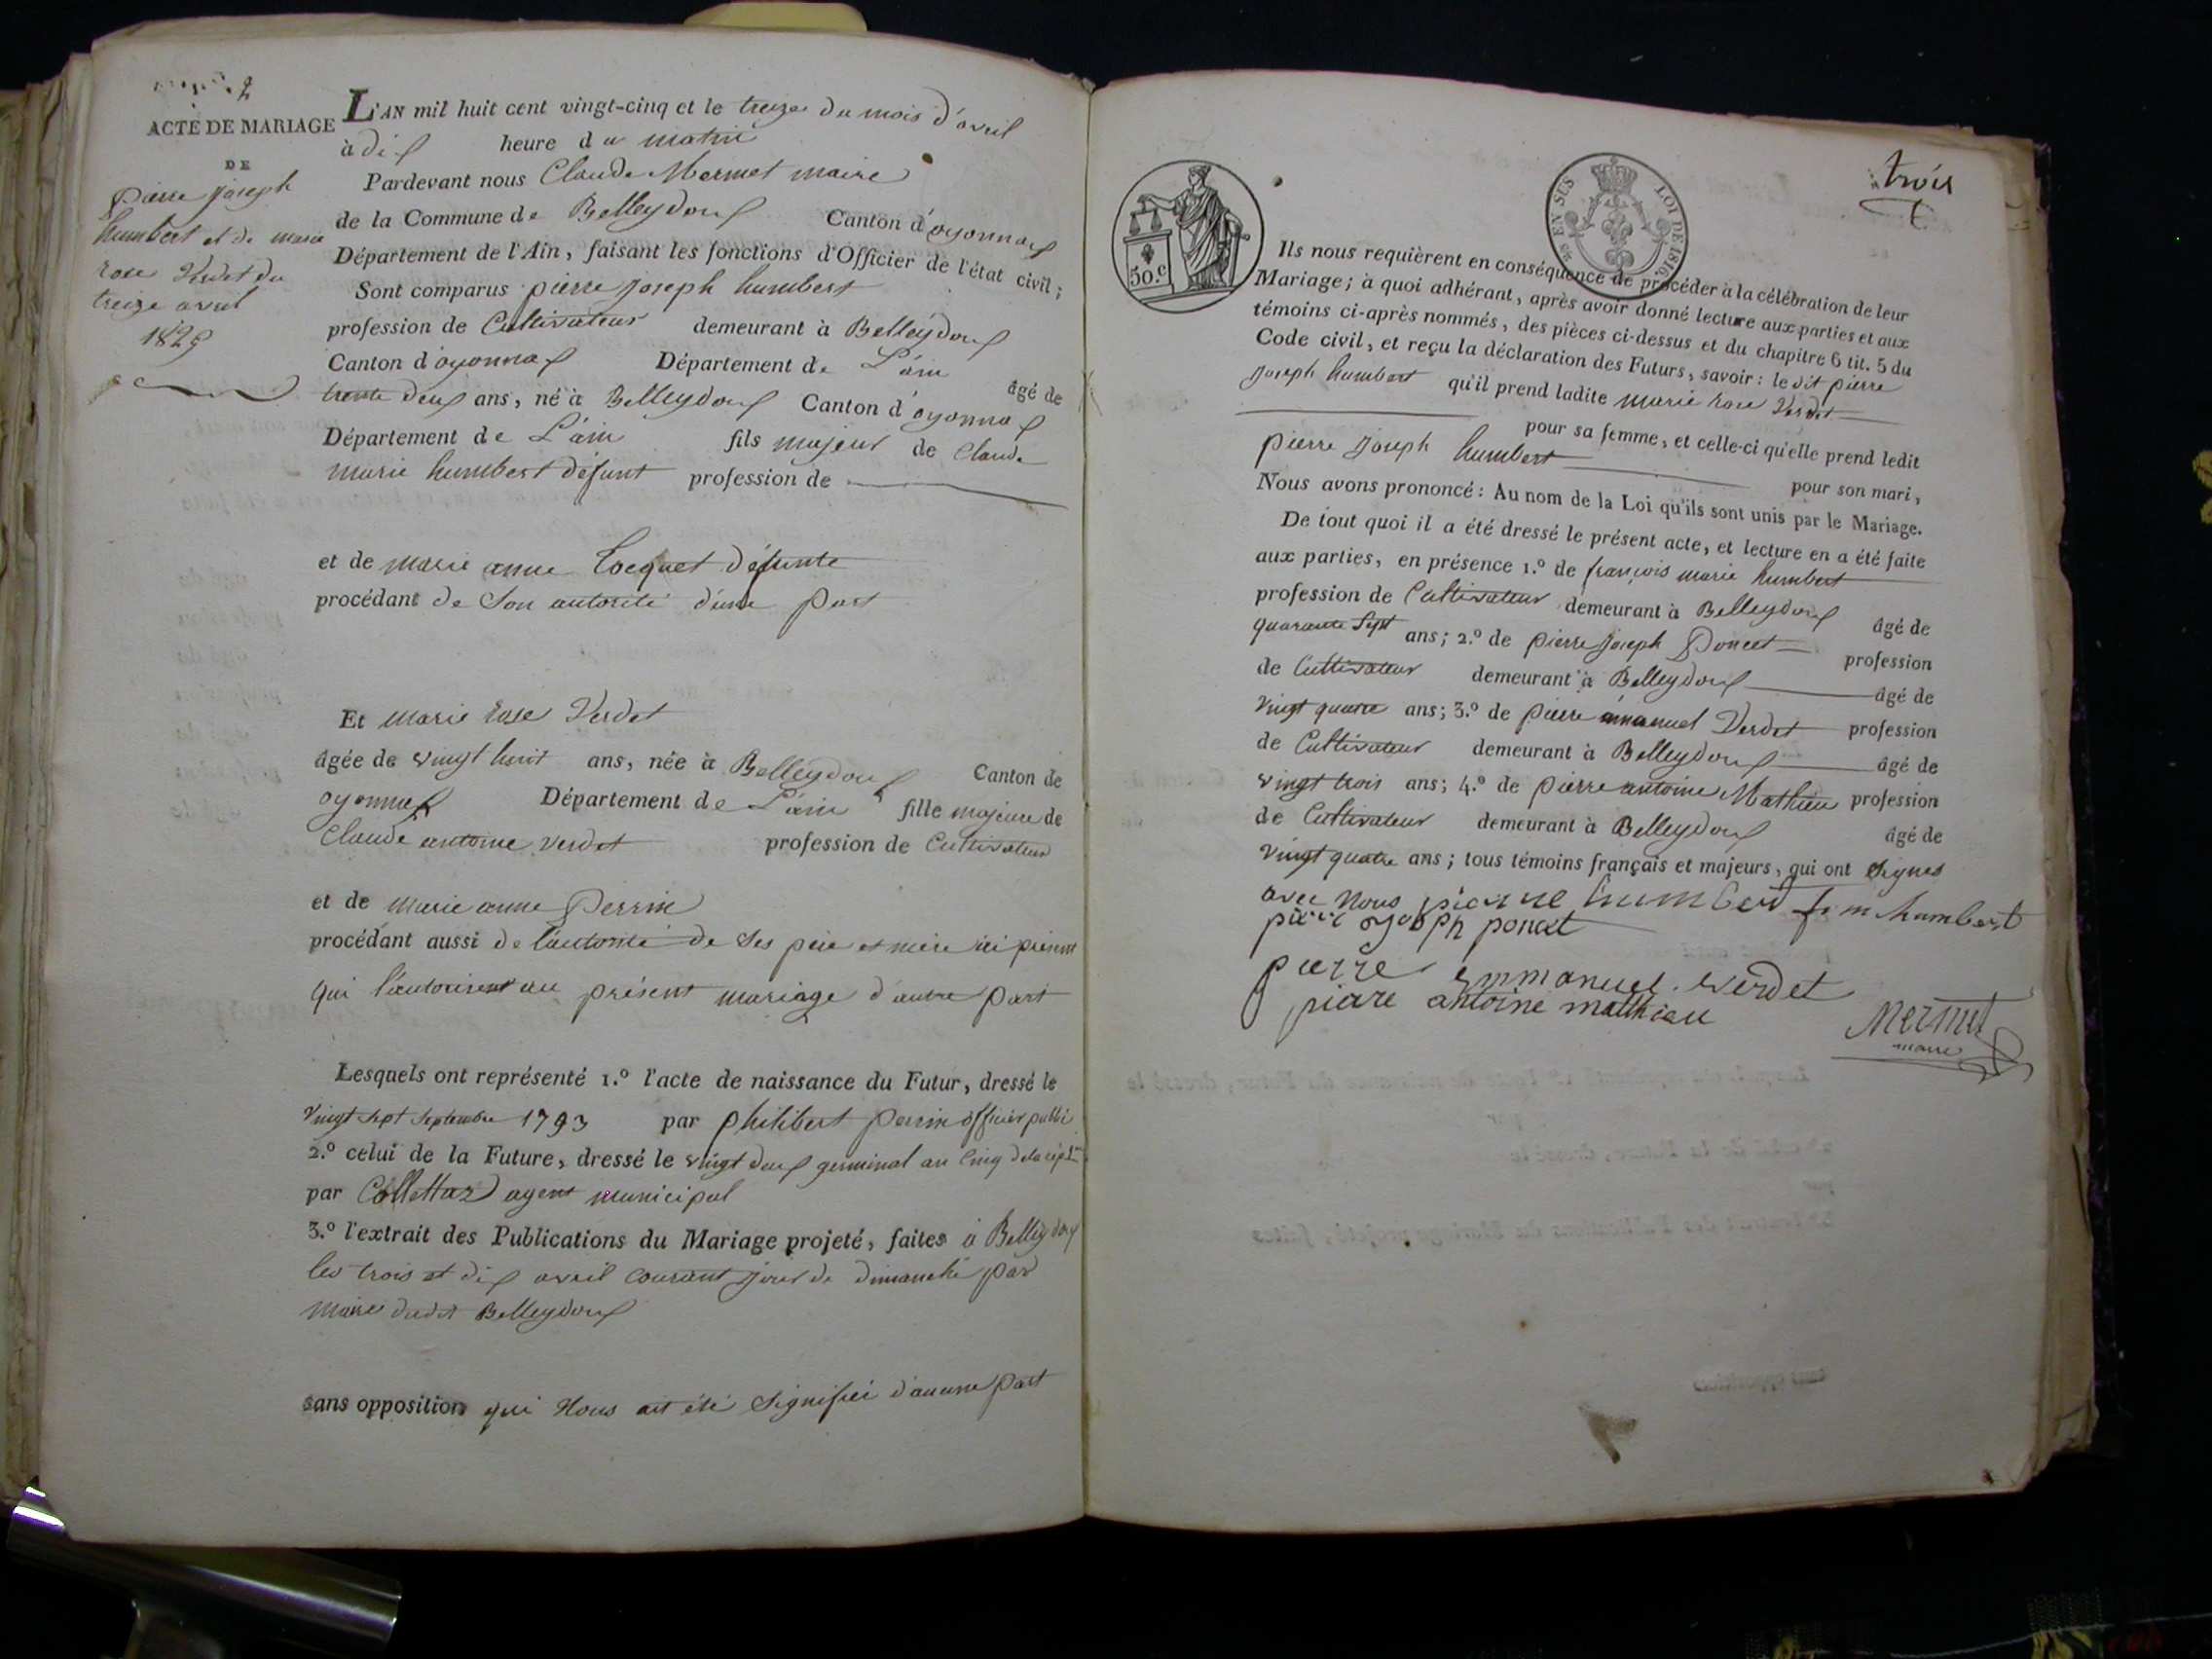 2
ACTE DE MARIAGE
DE
pierre joseph
humbert et de marie
rose Verdet du
treize avril
1825
L'AN mil huit cent vingt-cinq et le treize du mois d'avril
à dix heure du matin
Pardevant nous Claude Mermet maire
de la Commune de Belleydoux Canton d'oyonnax
Département de l'Ain, faisant les fonctions d'Officier de l'état civil;
Sont comparus pierre joseph humbert
profession de Cultivateur demeurant à Belleydoux
Canton d'oyonnax Département de L'ain âgé de
trente deux ans, né à Belleydoux Canton d'oyonnax
Département de L'ain fils majeur de Claude
marie humbert défunt profession de
et de marie anne Cocquet défunte
procédant de son autorité d'une part
Et marie rose Verdet
âgée de vingt huit ans, née à Belleydoux Canton de
oyonnax Département de L'ain fille majeure de
Claude antoine Verdet profession de Cultivateur
et de marie anne Perrin
procédant aussi de l'autorité de ses père et mère ici présent
qui l'autorisent au présent mariage d'autre part
Lesquels ont représenté 1.º l'acte de naissance du Futur, dressé le
vingt sept septembre 1793 par philibert perrin officier public
2.º celui de la Future, dressé le vingt deux germinal an cinq
par Collettaz agent municipal
3.º l'extrait des Publications du Mariage projeté, faites à Belleydoux
les trois et dix avril courant jour de dimanche par
maire dudit Belleydoux
sans opposition qui nous ait été signifié d'aucune part
trois
50.c
EN SUS
LOI DE 1816.
Ils nous requièrent en conséquence de procéder à la célébration de leur
Mariage; à quoi adhérant, après avoir donné lecture aux parties et aux
témoins ci-après nommés, des pièces ci-dessus et du chapitre 6 tit. 5 du
Code civil, et reçu la déclaration des Futurs, savoir: le dit pierre
joseph humbert qu'il prend ladite marie rose Verdet
pour sa femme, et celle-ci qu'elle prend ledit
pierre joseph humbert pour son mari,
Nous avons prononcé: Au nom de la Loi qu'ils sont unis par le Mariage.
De tout quoi il a été dressé le présent acte, et lecture en a été faite
aux parties, en présence 1.º de françois marie humbert
profession de Cultivateur demeurant à Belleydoux âgé de
quarante sept ans; 2.º de pierre joseph Poncet profession
de Cultivateur demeurant à Belleydoux âgé de
vingt quatre ans; 3.º de pierre Verdet profession
de Cultivateur demeurant à Belleydoux âgé de
vingt trois ans; 4.º de pierre antoine Mathieu profession
de Cultivateur demeurant à Belleydoux âgé de
vingt quatre ans; tous témoins français et majeurs, qui ont signés
avec nous humbert f m humbert
joseph poncet
pierre emmanuel verdet
piere antoine matthieu
Mermet
maire